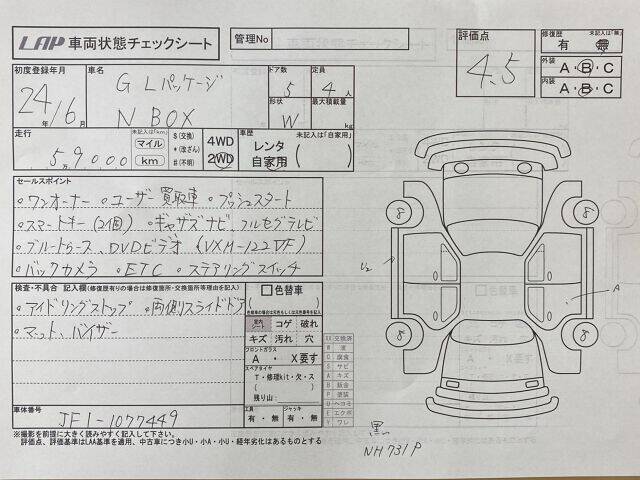 LAP 車両状態チェックシート
管理No
評価点
4.5
修復歴 未記入は「無」
有・無
外装 A・B・C
内装 A・B・C
初度登録年月
24年/6月
車名
G Lパッケージ
N BOX
ドア数
5
定員
4人
形状
W
最大積載量
kg
走行
5万9000
未記入は「km」
マイル
km
$(交換)
*(改ざん)
#(不明)
4WD
2WD
車歴 未記入は「自家用」
レンタ
自家用
セールスポイント
・ワンオーナー ・ユーザー買取車 ・プッシュスタート
・スマートキー(2個) ・ギャザズナビ、フルセグテレビ
・ブルートゥース、DVDビデオ (VXM-122VF)
・バックカメラ ・ETC ・ステアリングスイッチ
検査・不具合 記入欄(修復歴有りの場合は修復箇所・交換箇所等理由を記入)
・アイドリングストップ ・両側スライドドア
・マット、バイザー
色替車
( )
室内 シート コゲ 破れ
キズ 汚れ 穴
フロントガラス
A ・ X要す
スペアタイヤ
T・修理kit・欠・ス
残り山:
工具
有・無
ジャッキ
有・無
XX 交換済
W 波
C 腐食
S サビ
A キズ
B 鈑金
P 塗装
U ヘコミ
E エクボ
Y ワレ
車体番号
JF1-1077449
8
8
8
8
U2
A
黒
NH731P
※撮影を前提に大きく読みやすく記入して下さい。
評価点、評価基準はLAA基準を適用、中古車につき小U・小A・小U・経年劣化はあるものとする